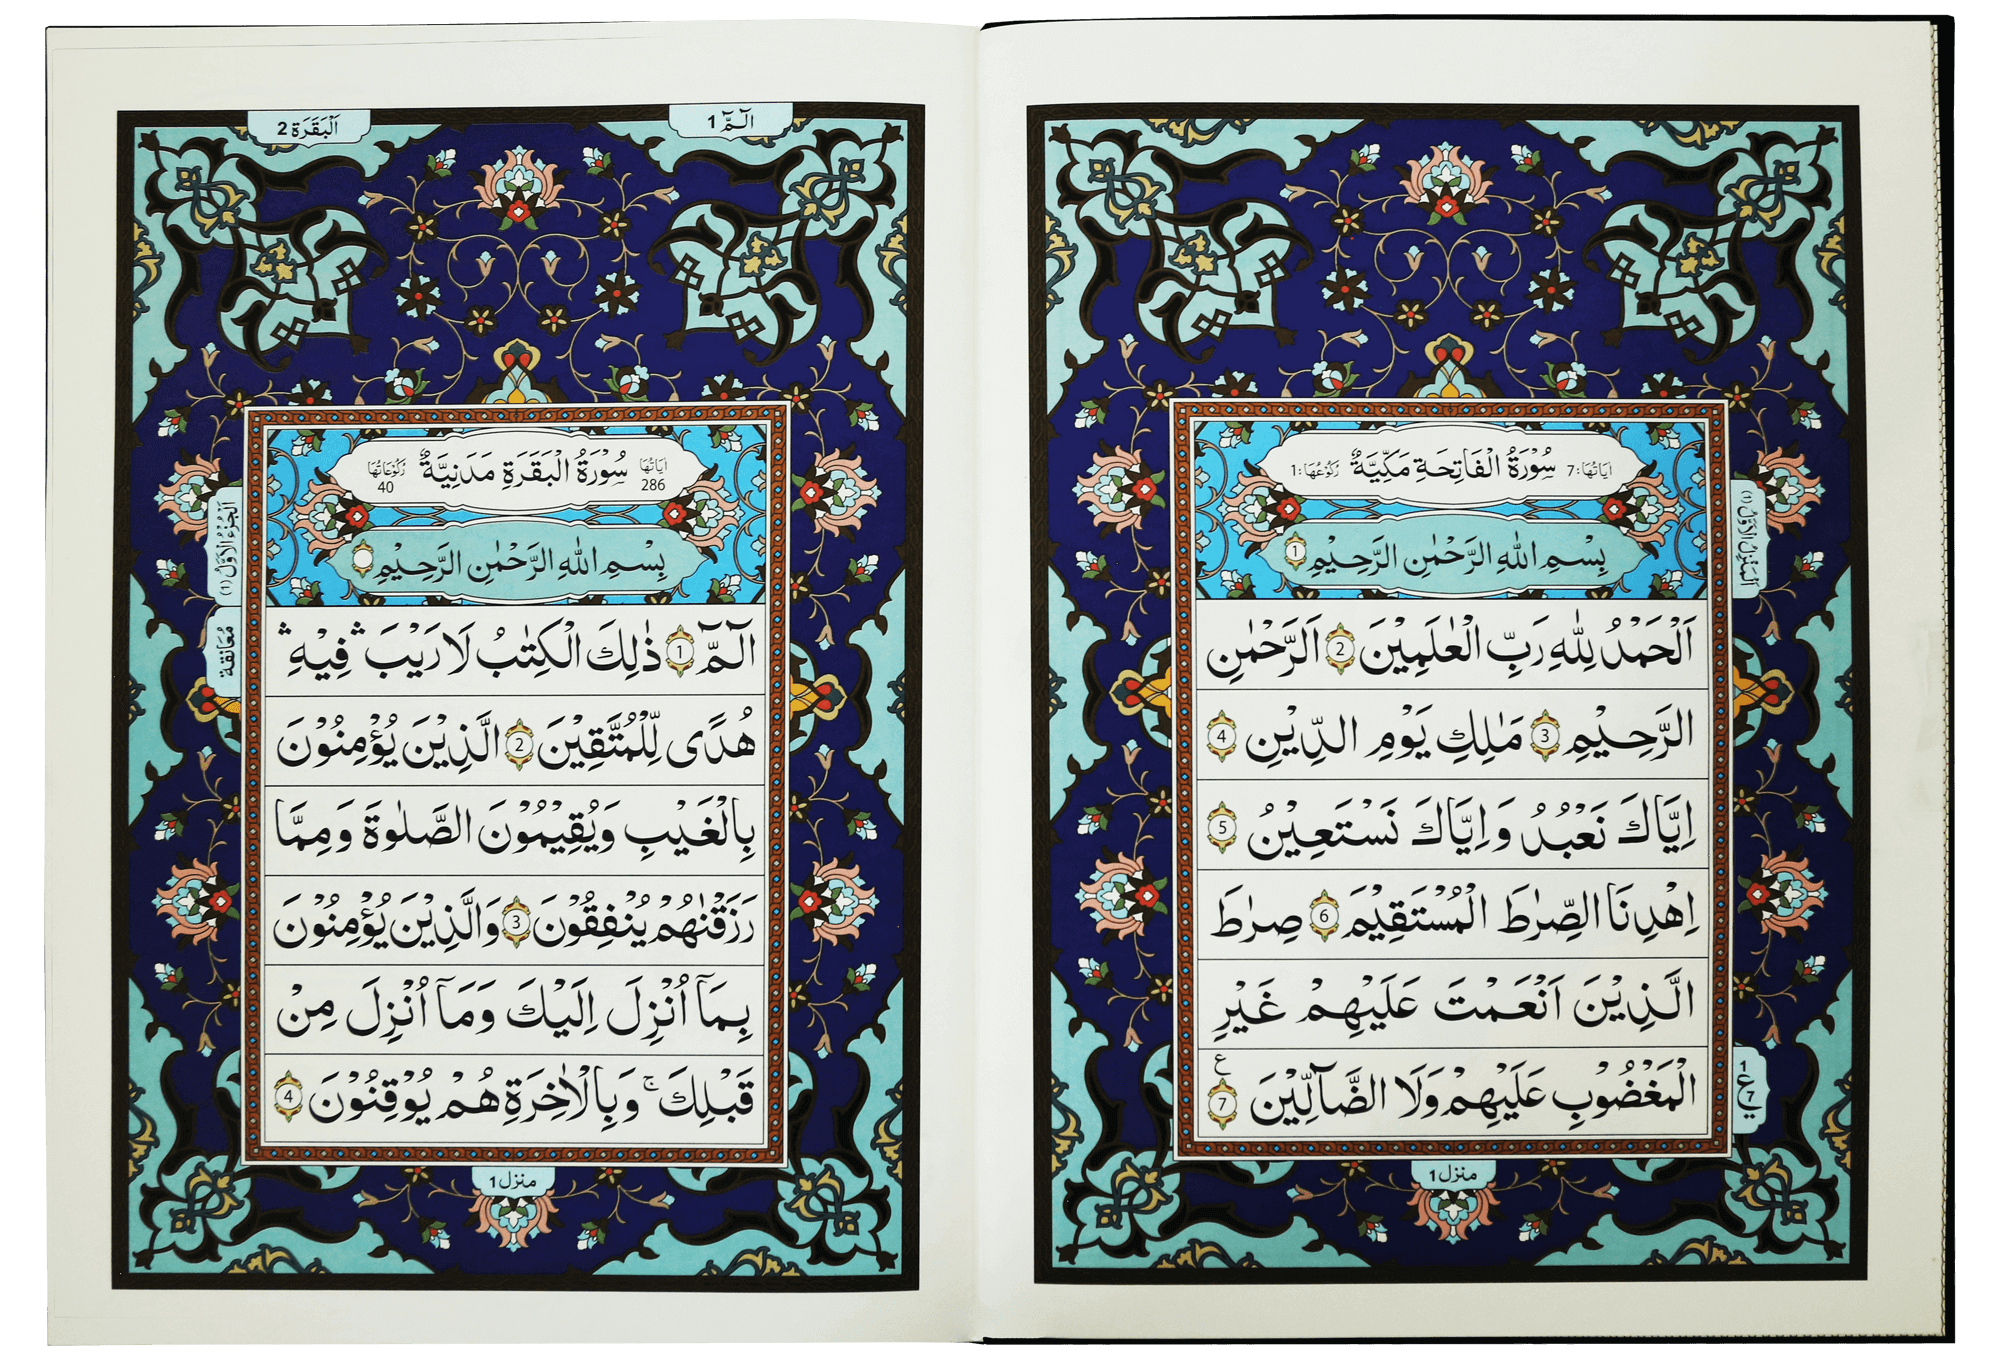 سُوْرَةُ الْفَاتِحَةِ مَكِّيَّةٌ
اٰيَاتُهَا: 7
رُكُوْعُهَا: 1
بِسْمِ اللّٰهِ الرَّحْمٰنِ الرَّحِيْمِ 1
اَلْحَمْدُ لِلّٰهِ رَبِّ الْعٰلَمِيْنَ 2 الرَّحْمٰنِ
الرَّحِيْمِ 3 مٰلِكِ يَوْمِ الدِّيْنِ 4
اِيَّاكَ نَعْبُدُ وَاِيَّاكَ نَسْتَعِيْنُ 5
اِهْدِنَا الصِّرٰطَ الْمُسْتَقِيْمَ 6 صِرٰطَ
الَّذِيْنَ اَنْعَمْتَ عَلَيْهِمْ غَيْرِ
الْمَغْضُوْبِ عَلَيْهِمْ وَلَا الضَّآلِّيْنَ 7 ع
اَلْمَنْزِلُ الْاَوَّلُ (1)
1 ع 7
منزل 1
الٓمّٓ 1
اَلْبَقَرَة 2
سُوْرَةُ الْبَقَرَةِ مَدَنِيَّةٌ
اٰيَاتُهَا 286
رُكُوْعَاتُهَا 40
بِسْمِ اللّٰهِ الرَّحْمٰنِ الرَّحِيْمِ
الٓمّٓ 1 ذٰلِكَ الْكِتٰبُ لَا رَيْبَ ۛ فِيْهِ ۛ
هُدًى لِّلْمُتَّقِيْنَ 2 الَّذِيْنَ يُؤْمِنُوْنَ
بِالْغَيْبِ وَيُقِيْمُوْنَ الصَّلٰوةَ وَمِمَّا
رَزَقْنٰهُمْ يُنْفِقُوْنَ 3 وَالَّذِيْنَ يُؤْمِنُوْنَ
بِمَآ اُنْزِلَ اِلَيْكَ وَمَآ اُنْزِلَ مِنْ
قَبْلِكَ ۚ وَبِالْاٰخِرَةِ هُمْ يُوْقِنُوْنَ 4
اَلْجُزْءُ الْاَوَّلُ (1)
مُعَانَقَة
منزل 1